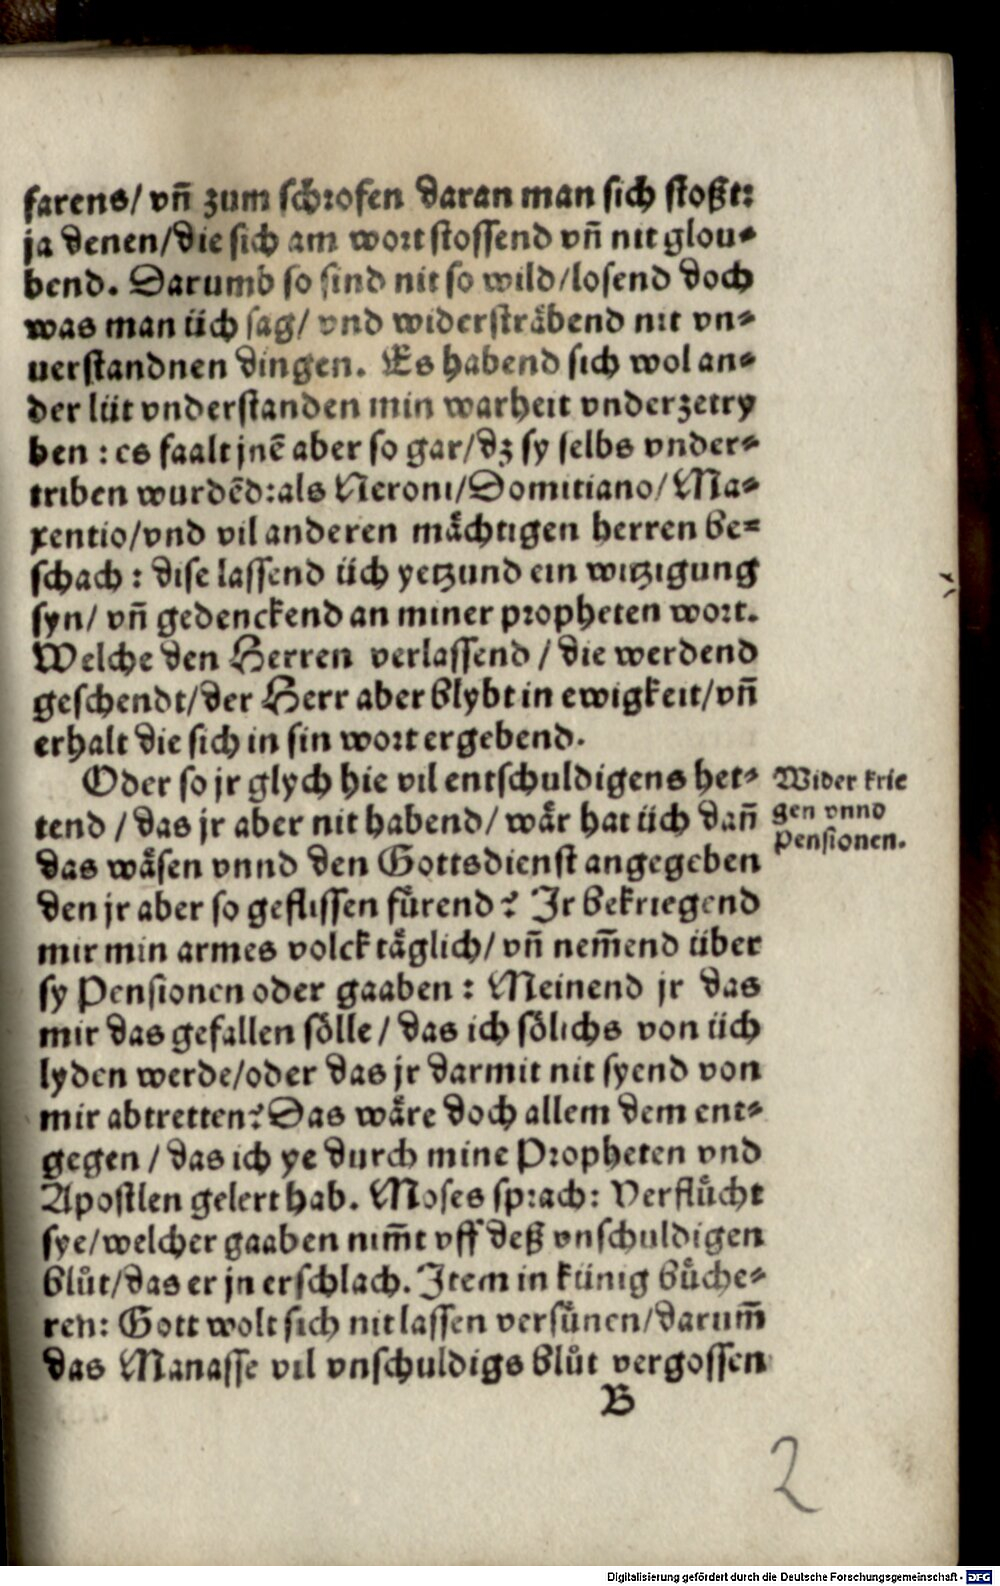 farens/ vñ zum schrofen daran man sich stoßt:
ja denen/die sich am wort stossend vñ nit glou⸗
bend. Darumb so sind nit so wild/losend doch
was man üch sag/ vnd widersträbend nit vn⸗
uerstandnen dingen. Es habend sich wol an⸗
der lüt vnderstanden min warheit vnderzetry
ben : es faalt jnē aber so gar/dz sy selbs vnder⸗
triben wurdēd:als Neroni/Domitiano/Ma⸗
xentio/vnd vil anderen mächtigen herren be⸗
schach : dise lassend üch yetzund ein witzigung
syn/ vñ gedenckend an miner propheten wort.
Welche den Herren verlassend / die werdend
geschendt/der Herr aber blybt in ewigkeit/vñ
erhalt die sich in sin wort ergebend.
Oder so jr glych hie vil entschuldigens het⸗
tend / das jr aber nit habend/ wär hat üch dañ
das wäsen vnnd den Gottsdienst angegeben
den jr aber so geflissen fürend? Jr bekriegend
mir min armes volck täglich/ vñ nem̃end über
sy Pensionen oder gaaben : Meinend jr das
mir das gefallen sölle / das ich sölichs von üch
lyden werde/oder das jr darmit nit syend von
mir abtretten? Das wäre doch allem dem ent⸗
gegen / das ich ye durch mine Propheten vnd
Apostlen gelert hab. Moses sprach: Verflücht
sye/welcher gaaben nim̃t vff deß vnschuldigen
blůt/das er jn erschlach. Item in künig bůche⸗
ren: Gott wolt sich nit lassen versünen/darum̃
das Manasse vil vnschuldigs blůt vergossen
B
Wider krie
gen vnnd
Pensionen.
2
Digitalisierung gefördert durch die Deutsche Forschungsgemeinschaft - DFG